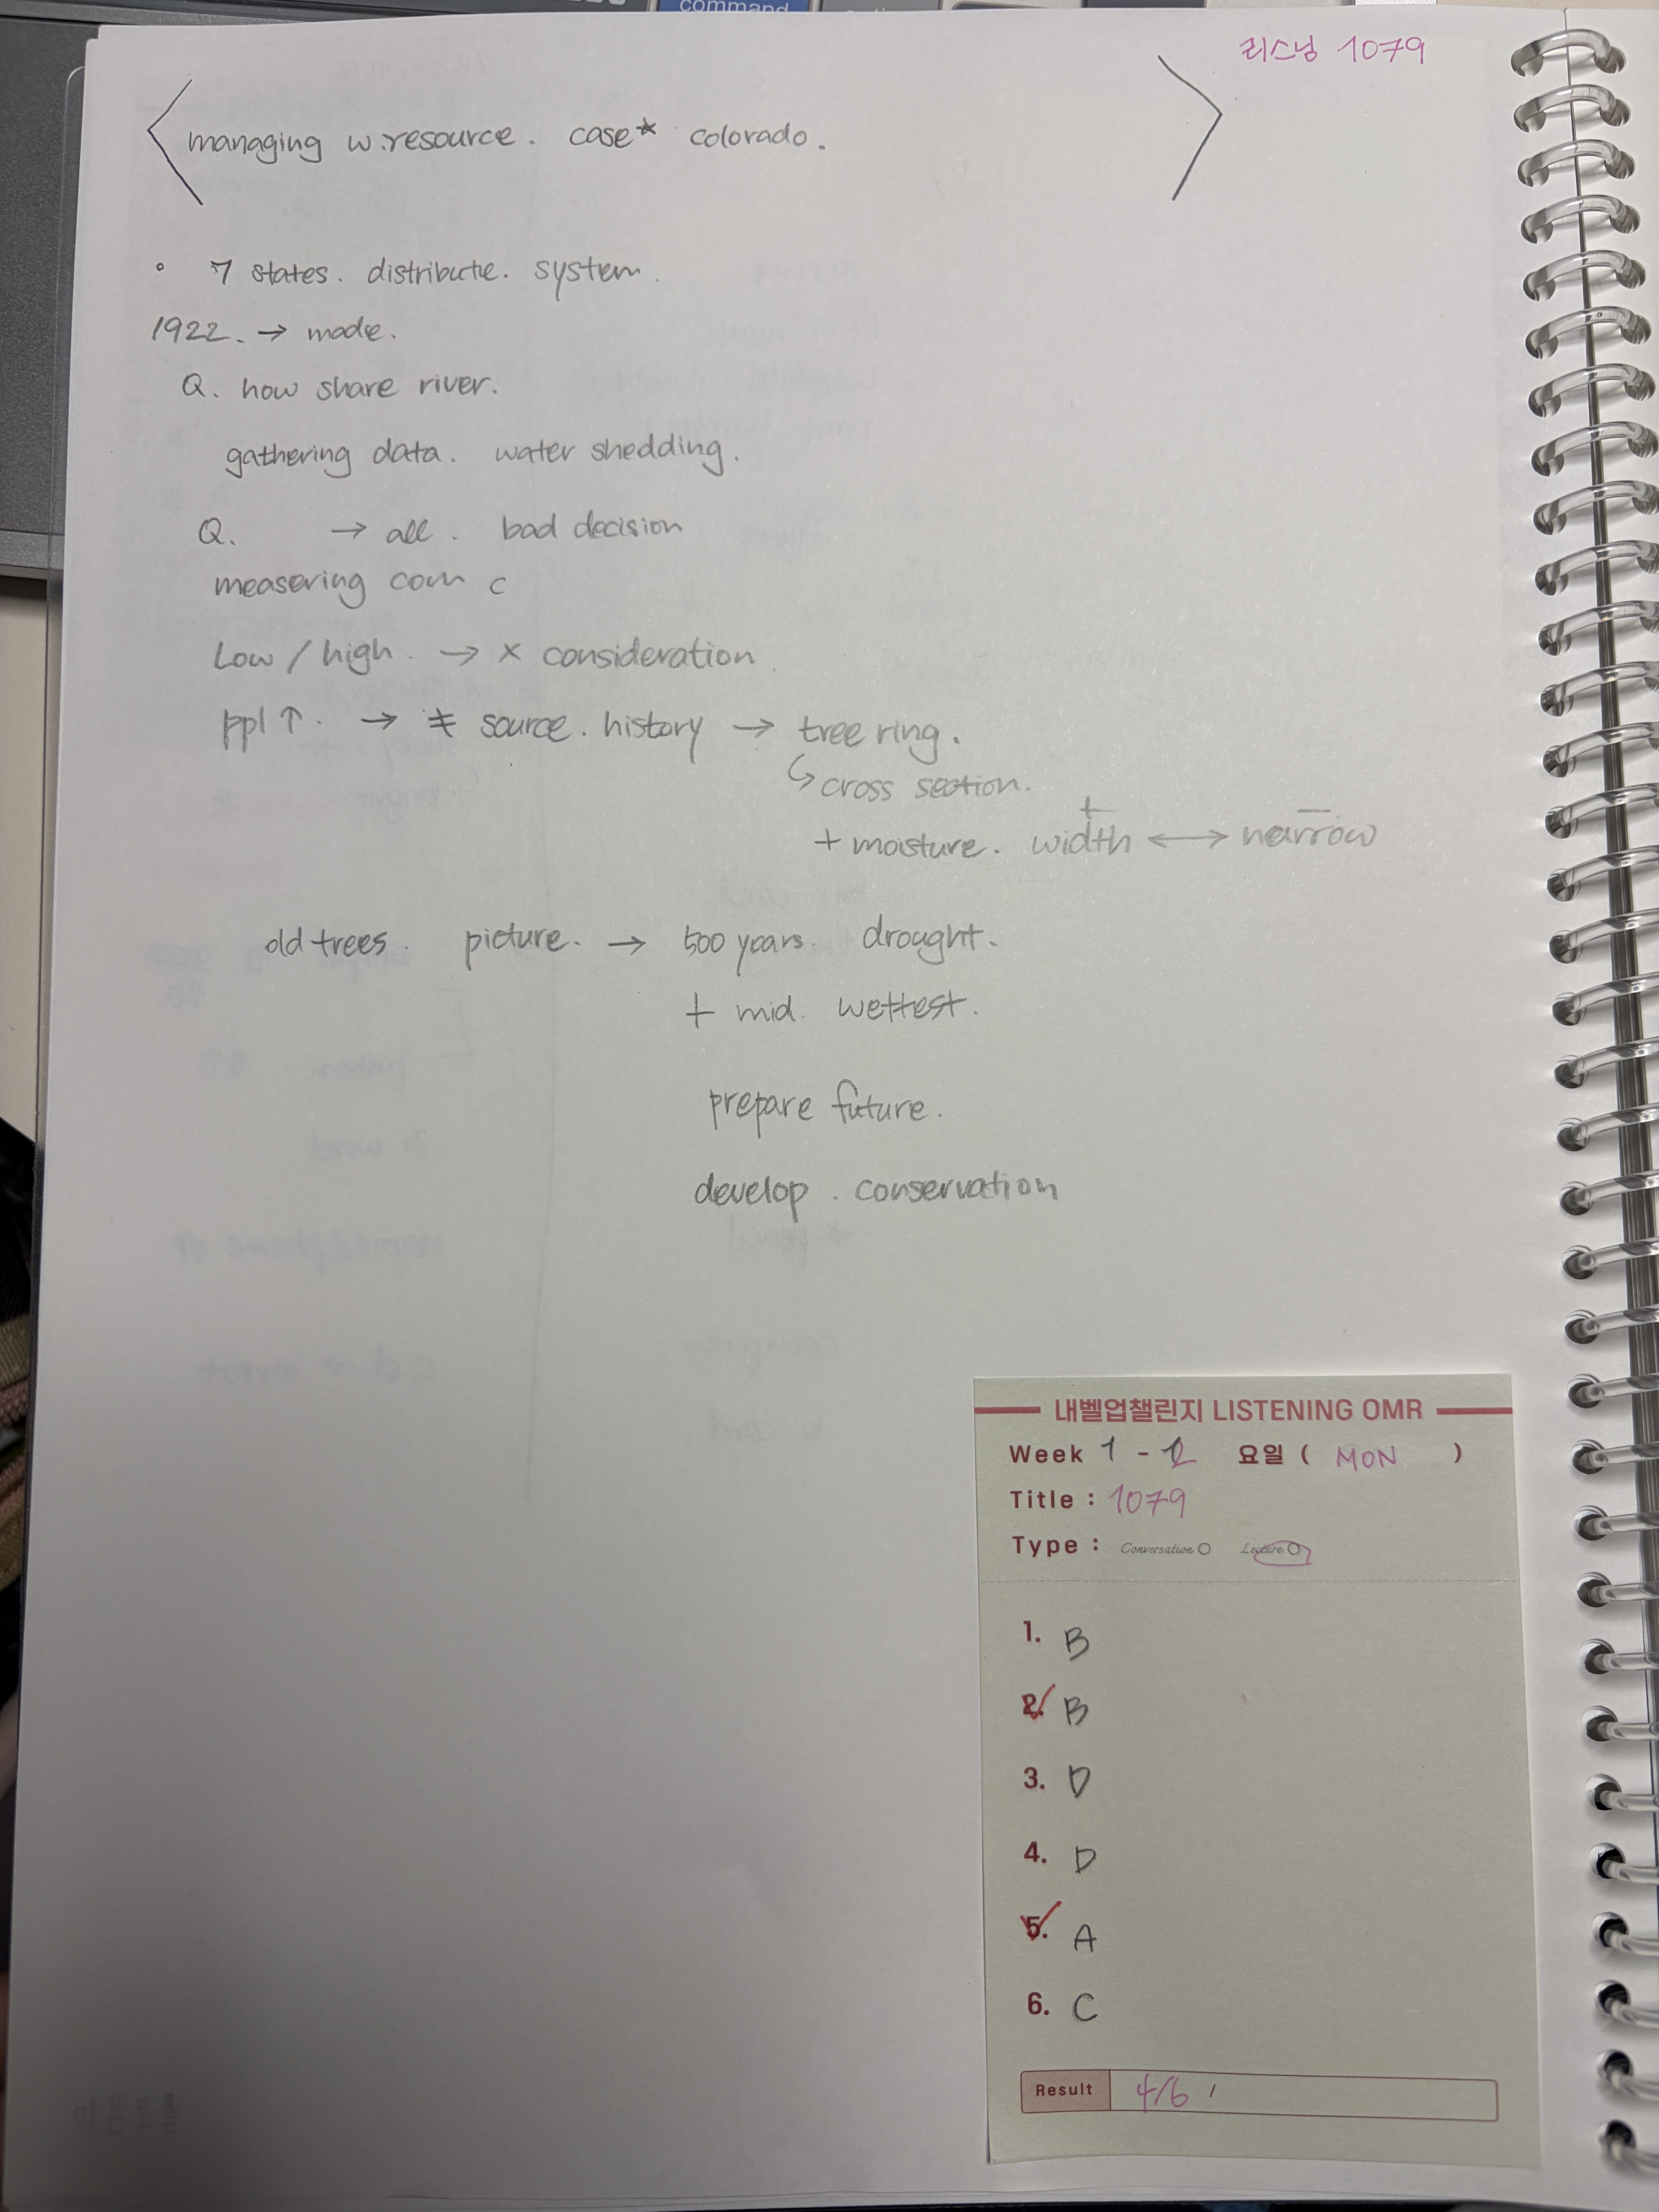 command
리스닝 1079
managing w.resource. case* colorado.
7 states. distribute. system.
1922. → made.
Q. how share river.
gathering data. water shedding.
Q. → all. bad decision
measering com c
Low / high. → × consideration
ppl ↑. → ≠ source. history → tree ring.
↳ cross section.
+ moisture. width ←→ narrow
+ −
old trees. picture. → 500 years. drought.
+ mid. wettest.
prepare future.
develop. conservation
내벨업챌린지 LISTENING OMR
Week 1 - 2 요일 ( MON )
Title : 1079
Type : Conversation Lecture
1. B
2. B
3. D
4. D
5. A
6. C
Result 4/6 /